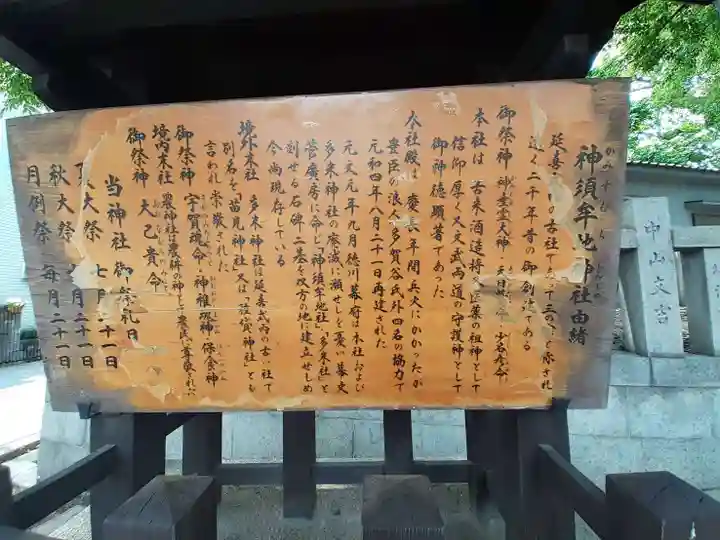 神須牟地神社由緒
かみすむち
延喜式内の古社で
近く二千年昔の御創建である
御祭神
本社は、古来酒造将又医薬の祖神として
信仰厚く又文武両道の守護神として
御神徳顕著であった
本社殿は、慶長年間兵火にかかったが
豊臣の浪人、多賀谷氏外四名の協力で
元和四年八月二十一日再建された
元文元年九月徳川幕府は本社および
多米神社の廃滅に瀕せしを憂い幕吏
菅廣房に命じ「神須牟地社」「多米社」と
刻せる石碑二基を双方の地に建立せしめ
今尚現存している
境外末社 多米神社は延喜式内の古い社で
別名を「苗見神社」又は「種貸神社」とも
言われ崇敬された
御祭神 宇賀魂命・神稚瓊神・保食神
境内末社 農神社は農耕の神として農民に尊敬されていた
御祭神 大己貴命
当神社御祭礼日
夏大祭 七月二十一日
秋大祭 月二十一日
月例祭 毎月二十一日
中山文吉